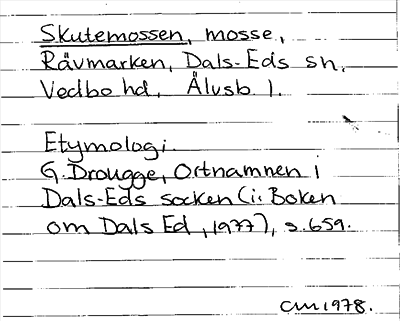 Skutemossen, mosse,
Rävmarken, Dals-Eds sn.
Vedbo hd, Älvsb. l.
Etymologi.
G. Drougge, Ortnamnen i
Dals-Eds socken (i: Boken
om Dals Ed, 1977), s. 659.
CM 1978.